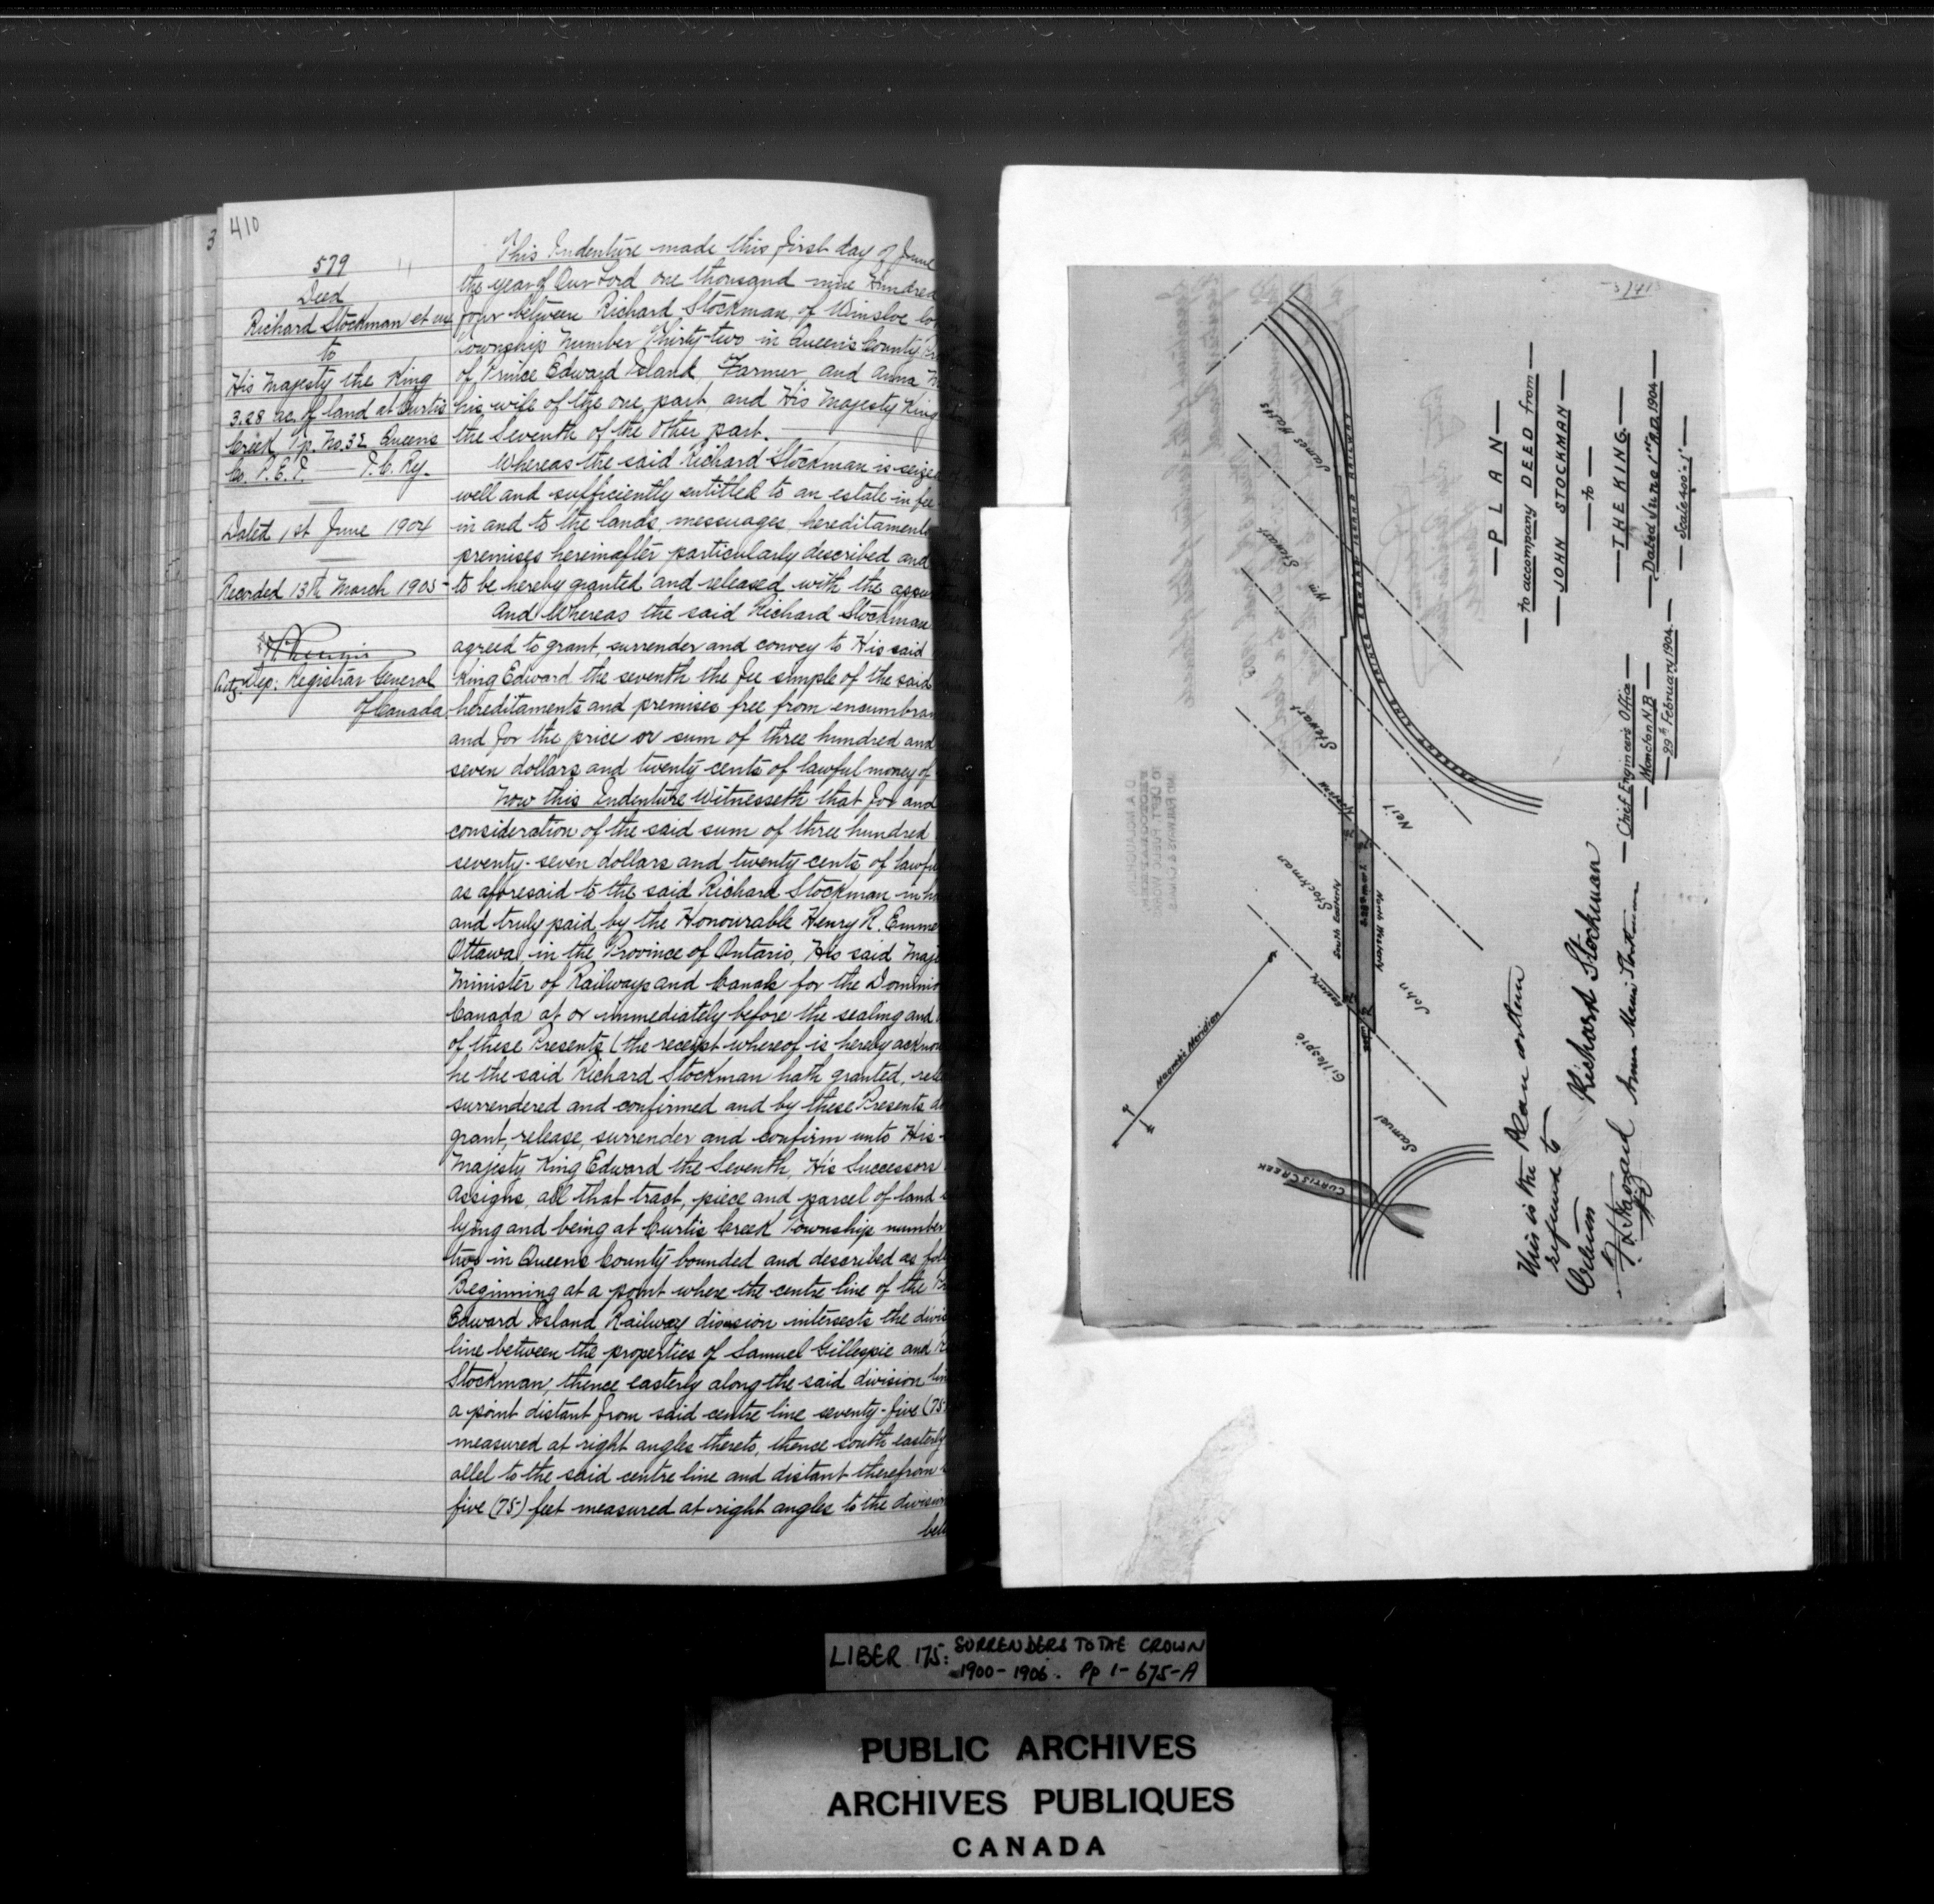 410
3
579
Deed
Richard Stockman et ux
to
His Majesty the King
3.28 ac. of land at Curtis
Creek, Tp. No. 32 Queen's
Co. P.E.I. — I.C. Ry.
Dated 1st June 1904
Recorded 13th March 1905
Actg Dep: Registrar General
of Canada
This Indenture made this first day of June
the year of Our Lord one thousand nine Hundred
four between Richard Stockman, of Winsloe
Township Number Thirty-two in Queen's County
of Prince Edward Island, Farmer and Anna
his wife of the one part, and His Majesty King
the Seventh of the Other part.
Whereas the said Richard Stockman is seized
well and sufficiently entitled to an estate in fee
in and to the lands, messuages, hereditaments
premises hereinafter particularly described and
to be hereby granted and released with the
And Whereas the said Richard Stockman
agreed to grant, surrender and convey to His said
King Edward the seventh the fee simple of the said
hereditaments and premises free from
and for the price or sum of three hundred and
seven dollars and twenty cents of lawful money of
Now this Indenture Witnesseth that for and
consideration of the said sum of three hundred
seventy-seven dollars and twenty cents of
as aforesaid to the said Richard Stockman in
and truly paid by the Honourable Henry R.
Ottawa, in the Province of Ontario, His said
Minister of Railways and Canals for the
Canada at or immediately before the sealing and
of these Presents (the receipt whereof is hereby
he the said Richard Stockman hath granted,
surrendered and confirmed and by these Presents
grant, release, surrender and confirm unto His
Majesty King Edward the Seventh, His Successors
Assigns, all that tract, piece and parcel of land
lying and being at Curtis Creek Township number
two in Queens County bounded and described as
Beginning at a point where the centre line of the
Edward Island Railway division intersects the
line between the properties of Samuel Gillespie and
Stockman, thence easterly along the said division
a point distant from said centre line seventy-five (75
measured at right angles thereto, thence south easterly
allel to the said centre line and distant therefrom
five (75) feet measured at right angles to the division
PLAN
to accompany DEED from
JOHN STOCKMAN
to
THE KING.
Dated June 1st A.D. 1904
Scale 400' = 1"
Chief Engineer's Office
Moncton N.B
29th February 1904.
James Hobbs
Wm Stewart
PRINCE EDWARD ISLAND RAILWAY
PRESENT LINE
Neil Stewart
John Stockman
South Easterly
North Westerly
Easterly
Samuel Gillespie
Magnetic Meridian
CURTIS CREEK
This is the Plan within
referred to
Richard Stockman
Anna Maria Stockman
LIBER 175: SURRENDERS TO THE CROWN
1900-1906. Pp 1-675-A
PUBLIC ARCHIVES
ARCHIVES PUBLIQUES
CANADA